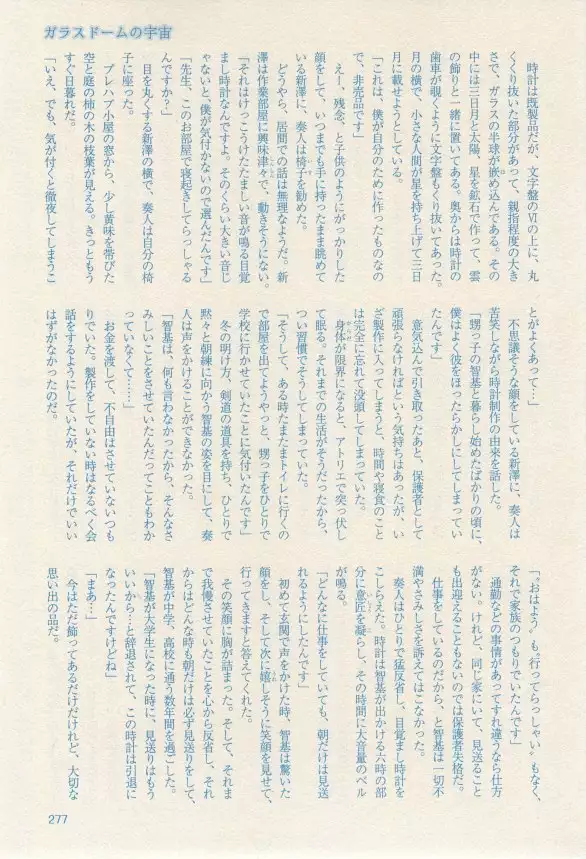 ガラスドームの宇宙
時計は既製品だが、文字盤のⅥの上に、丸
くくり抜いた部分があって、親指程度の大き
さで、ガラスの半球が嵌め込んである。その
中には三日月と太陽、星を鉱石で作って、雲
の飾りと一緒に置いてある。奥からは時計の
歯車が覗くように文字盤もくり抜いてあった。
月の横で、小さな人間が星を持ち上げて三日
月に載せようとしている。
「これは、僕が自分のために作ったものなの
で、非売品です」
えー、残念、と子供のようにがっかりした
顔をして、いつまでも手に持ったまま眺めて
どうやら、居間での話は無理なようだ。新
澤は作業部屋に興味津々で、動きそうにない。
奏人は椅子を勧めた。
「それはけっこうけたたましい音が鳴る目覚
まし時計なんですよ。そのくらい大きい音じ
ゃないと、僕が気付かないので選んだんです」
「先生、このお部屋で寝起きしてらっしゃる
んですか？」
目を丸くする新澤の横で、奏人は自分の椅
子に座った。
プレハブ小屋の窓から、少し黄味を帯びた
空と庭の柿の木の枝葉が見える。きっともう
すぐ日暮れだ。
「いえ、でも、気が付くと徹夜してしまうこ
とがよくあって…」
不思議そうな顔をしている新澤に、奏人は
苦笑しながら時計制作の由来を話した。
「甥っ子の智基と暮らし始めたばかりの頃に、
僕はよく彼をほったらかしにしてしまってい
たんです」
意気込んで引き取ったあと、保護者として
頑張らなければという気持ちはあったが、い
ざ製作に入ってしまうと、時間や寝食のこと
は完全に忘れて没頭してしまっていた。
身体が限界になると、アトリエで突っ伏し
て眠る。それまでの生活がそうだったから、
つい習慣でそうしてしまっていた。
「そうして、ある時たまたまトイレに行くの
で部屋を出てようやっと、甥っ子をひとりで
学校に行かせていたことに気付いたんです」
冬の明け方、剣道の道具を持ち、ひとりで
黙々と朝練に向かう智基の姿を目にして、奏
人は声をかけることができなかった。
「智基は、何も言わなかったから、そんなさ
みしいことをさせていたんだってこともわか
っていなくて……」
お金を渡して、不自由はさせていないつも
りでいた。製作をしていない時はなるべく会
話をするようにしていたが、それだけでいい
はずがなかったのだ。
「〝おはよう〟も〝行ってらっしゃい〟もなく、
それで家族のつもりでいたんです」
通勤などの事情があってすれ違うなら仕方
がない。けれど、同じ家にいて、見送ること
も出迎えることもないのでは保護者失格だ。
仕事をしているのだから、と智基は一切不
満やさみしさを訴えてはこなかった。
奏人はひとりで猛反省し、目覚まし時計を
こしらえた。時計は智基が出かける六時の部
分に意匠を凝らし、その時間に大音量のベル
が鳴る。
「どんなに仕事をしていても、朝だけは見送
れるようにしたんです」
初めて玄関で声をかけた時、智基は驚いた
顔をし、そして次に嬉しそうに笑顔を見せて、
行ってきますと答えてくれた。
その笑顔に胸が詰まった。そして、それま
で我慢させていたことを心から反省し、それ
からはどんな時も朝だけは必ず見送りをして、
智基が中学、高校に通う数年間を過ごした。
「智基が大学生になった時に、見送りはもう
いいから…と辞退されて、この時計は引退に
なったんですけどね」
「まあ…」
今はただ飾ってあるだけだけれど、大切な
思い出の品だ。
277